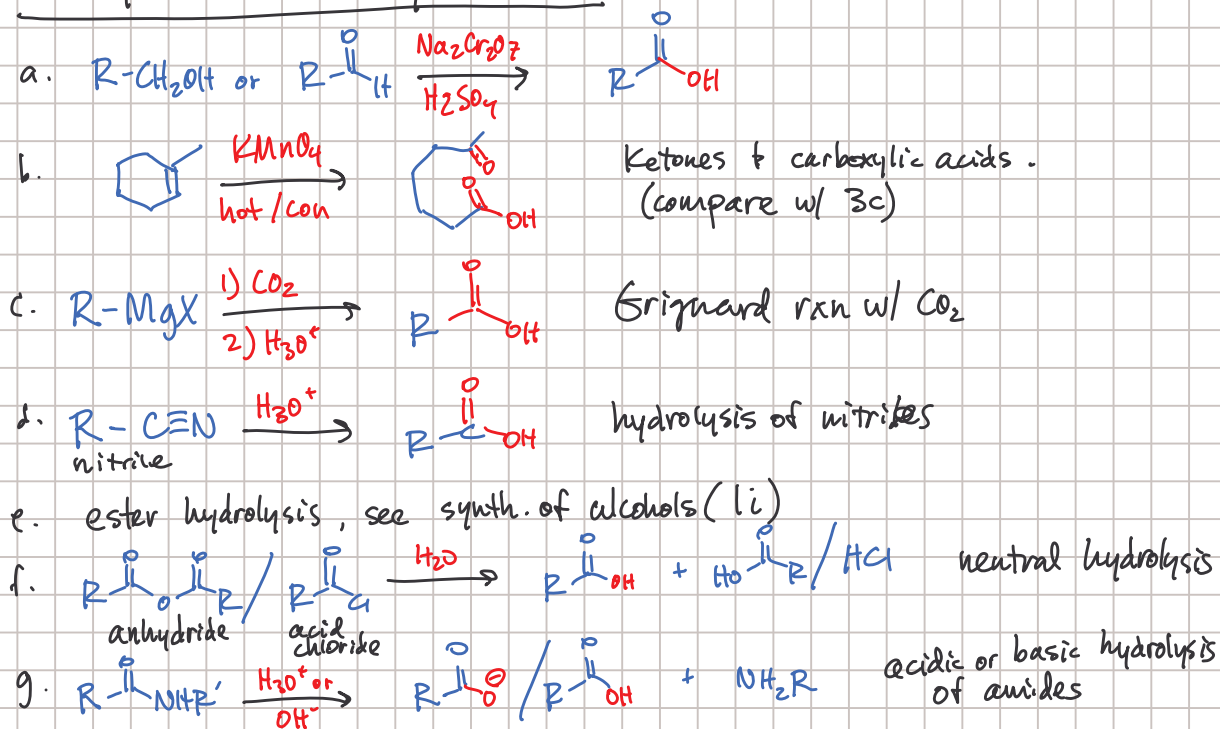 a. R-CH2OH or R O H Na2Cr2O7 H2SO4 R O OH
b. KMnO4 hot/con O O OH Ketones & carboxylic acids.
(compare w/ 3c)
c. R-MgX 1) CO2 2) H3O+ R O OH Grignard rxn w/ CO2
d. R-C≡N H3O+ R C O OH hydrolysis of nitriles
nitrile
e. ester hydrolysis, see synth. of alcohols (1i)
f. R O O O R / R O Cl H2O R O OH + HO O R / HCl neutral hydrolysis
anhydride acid chloride
g. R O NHR' H3O+ or OH- R O O⊖ / R O OH + NH2R acidic or basic hydrolysis
of amides